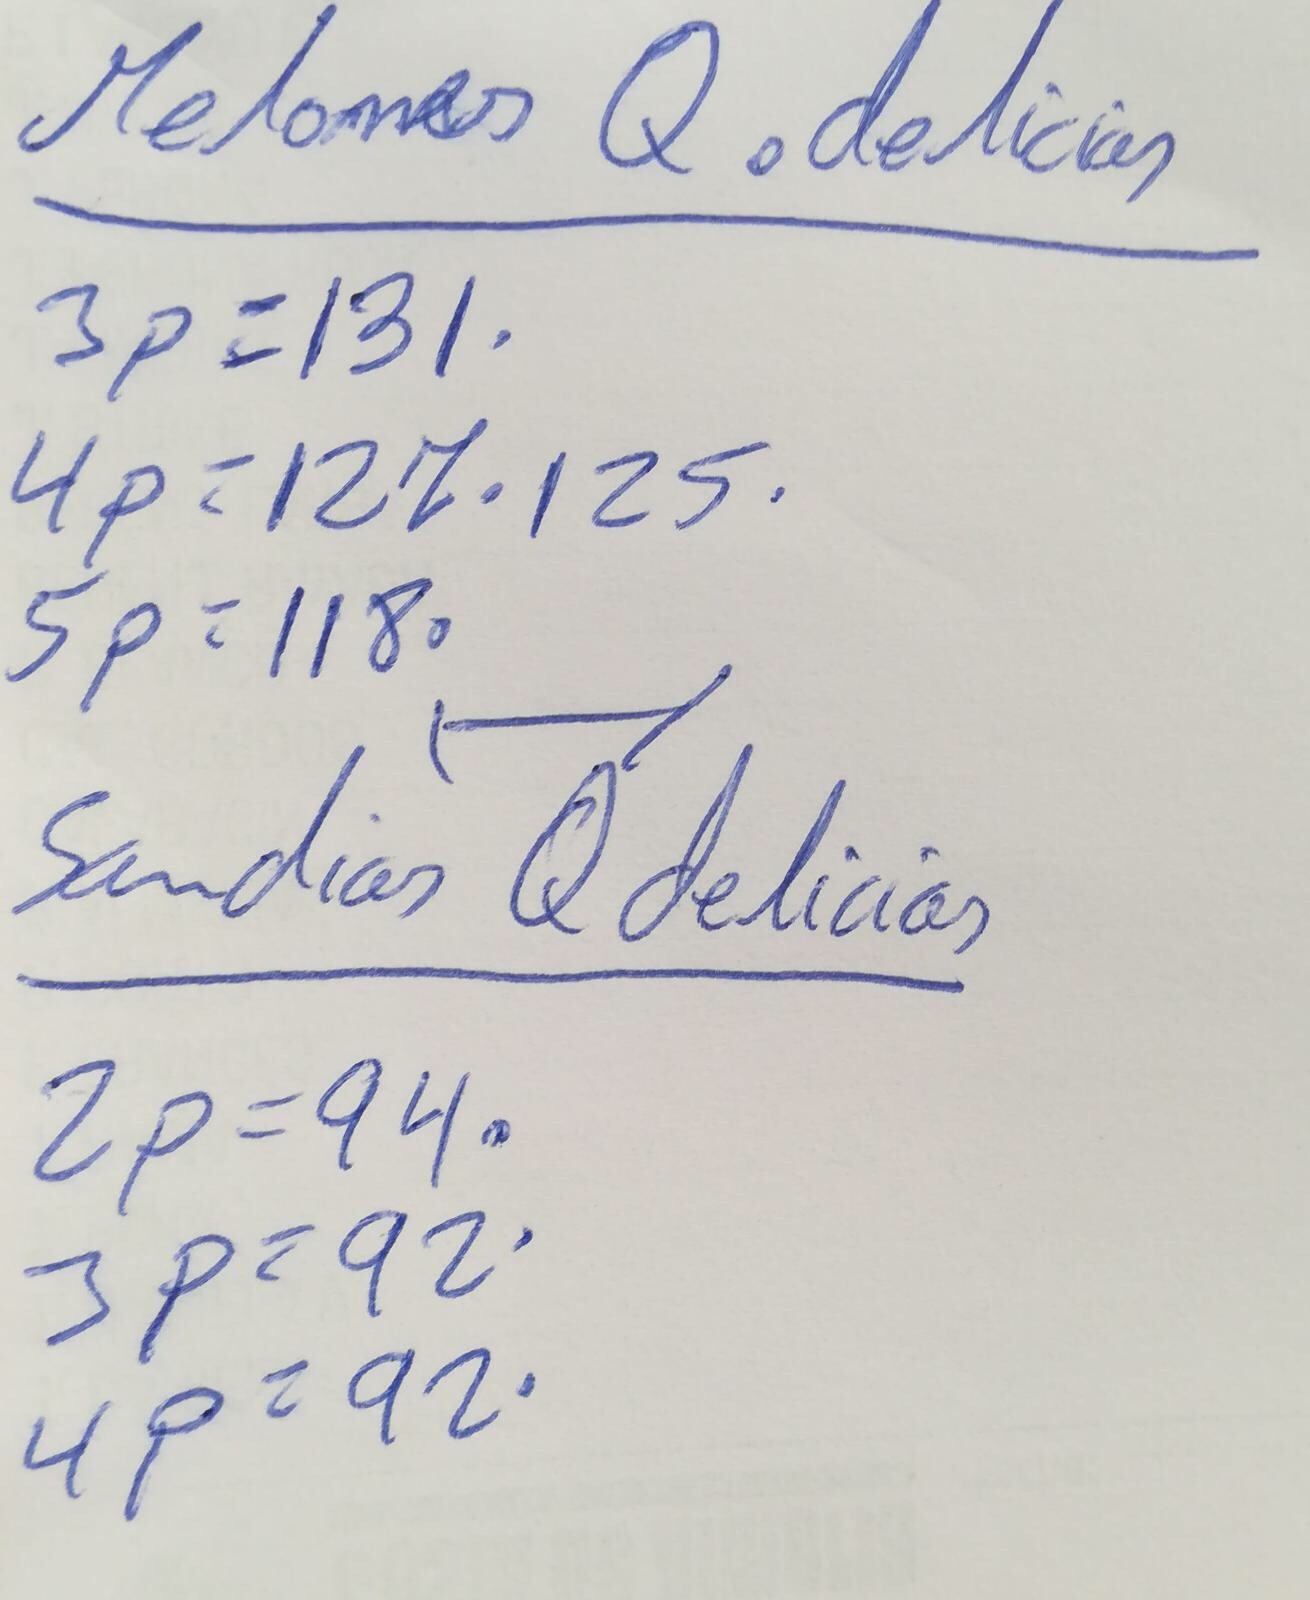 Melones Q. delicias
3p = 131.
4p = 127. 125.
5p = 118.
Sandias Q delicias
2p = 94.
3p = 92.
4p = 92.